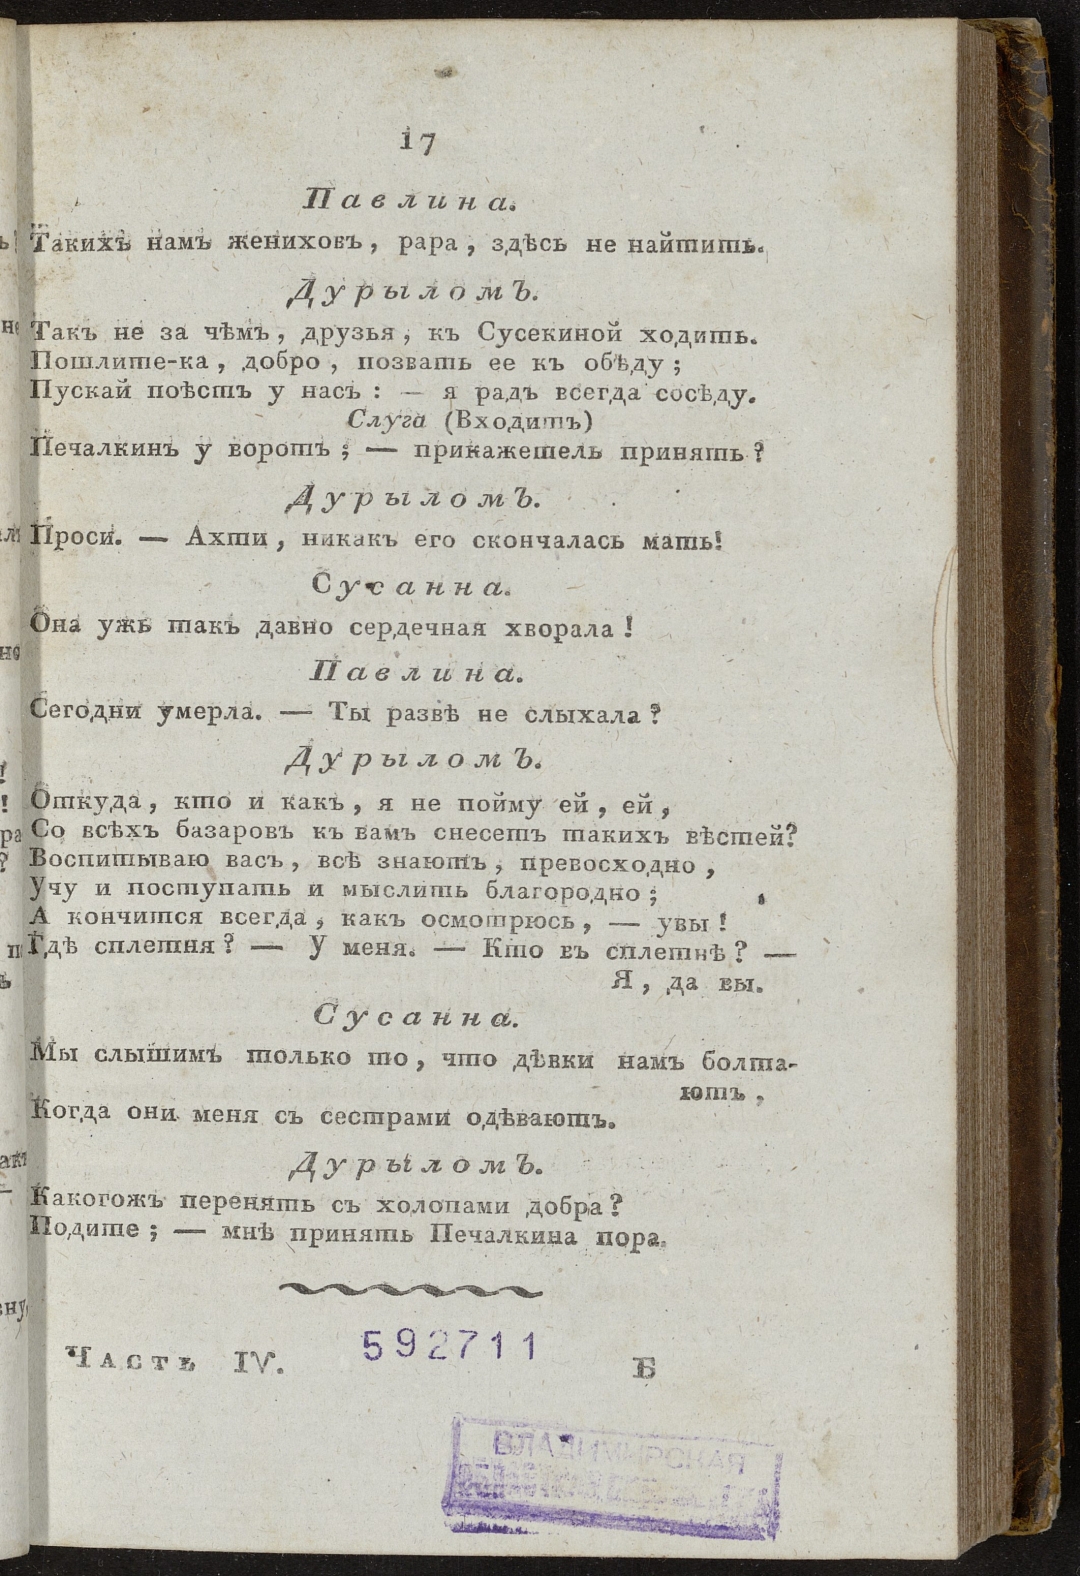 17
Павлина.
Такихъ намъ жениховъ, papa, здѣсь не найтить.
Дурыломъ.
Такъ не за чѣмъ, друзья, къ Сусекиной ходить.
Пошлите-ка, добро, позвать ее къ обѣду;
Пускай поѣстъ у насъ: — я радъ всегда сосѣду.
Слуга (Входитъ)
Печалкинъ у воротъ; — прикажетель принять?
Дурыломъ.
Проси. — Ахти, никакъ его скончалась мать!
Сусанна.
Она ужь такъ давно сердечная хворала!
Павлина.
Сегодни умерла. — Ты развѣ не слыхала?
Дурыломъ.
Откуда, кто и какъ, я не пойму ей, ей,
Со всѣхъ базаровъ къ вамъ снесетъ такихъ вѣстей?
Воспитываю васъ, всѣ знаютъ, превосходно,
Учу и поступать и мыслить благородно;
А кончится всегда, какъ осмотрюсь, — увы!
Гдѣ сплетня? — У меня. — Кто въ сплетнѣ? —
Я, да вы.
Сусанна.
Мы слышимъ только то, что дѣвки намъ болта-
ютъ,
Когда они меня съ сестрами одѣваютъ.
Дурыломъ.
Какогожъ перенять съ холопами добра?
Подите; — мнѣ принять Печалкина пора.
Часть IV.
592711
Б
ВЛАДИМИРСКАЯ